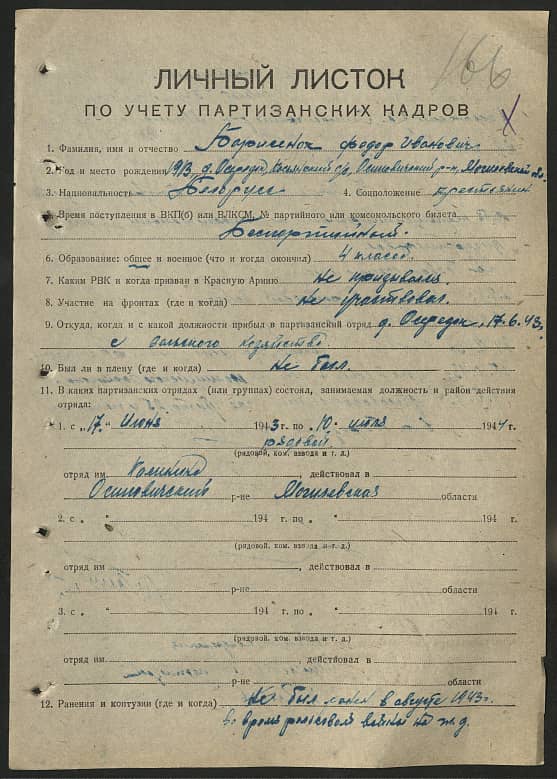 166
ЛИЧНЫЙ ЛИСТОК
ПО УЧЕТУ ПАРТИЗАНСКИХ КАДРОВ
1. Фамилия, имя и отчество Борисенок Федор Иванович
2. Год и место рождения 1913, д. Осередок, с/с, Осиповичский р-н, Могилевской обл.
3. Национальность Белорус 4. Соцположение крестьянин
5. Время поступления в ВКП(б) или ВЛКСМ, № партийного или комсомольского билета
Беспартийный.
6. Образование: общее и военное (что и когда окончил) 4 класса.
7. Каким РВК и когда призван в Красную Армию Не призывался
8. Участие на фронтах (где и когда) Не участвовал.
9. Откуда, когда и с какой должности прибыл в партизанский отряд д. Осередок, 17.6.43,
с сельского хозяйства
10. Был ли в плену (где и когда) Не был.
11. В каких партизанских отрядах (или группах) состоял, занимаемая должность и район действия
отряда:
1. с „17“ Июня 1943 г. по „10“ июля 1944 г.
рядовой
(рядовой, ком. взвода и т. д.)
отряд им Калинина, действовал в
Осиповичский р-не Могилевская области
2. с „ “ 194 г. по „ “ 194 г.
(рядовой, ком. взвода и т. д.)
отряд им , действовал в
р-не области
3. с „ “ 194 г. по „ “ 194 г.
(рядовой, ком. взвода и т. д.)
отряд им , действовал в
р-не области
12. Ранения и контузии (где и когда) Не был в августе 1943 г.
во время рельсовой войны на ж.д.